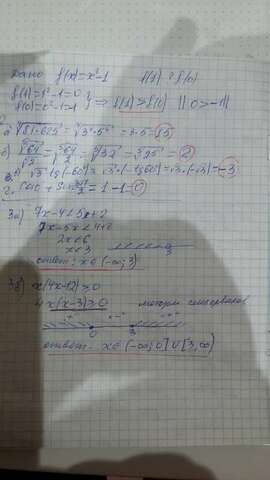 Дано f(x)=x²-1 f(1) ? f(0)
f(1)=1²-1=0
f(0)=0²-1=-1 } ⇒ f(1)>f(0) || 0>-1 ||
а) ⁴√81·625 = ⁴√3⁴·5⁴ = 3·5=15
б) ⁵√64 / ⁵√2 = ⁵√64/2 = ⁵√32 = ⁵√2⁵ = 2
в) √3 tg(-60°)= √3·(-tg60)=√3·(-√3)=-3
г. cos0 + sin 3π/2 = 1-1=0
3а) 7x-4<5x+2
7x-5x<4+2
2x<6
x<3 3
ответ: x∈(-∞;3)
3б) x(4x-12)≥0
4x(x-3)≥0 методом интервалов
+ - +
0 3
ответ - x∈(-∞;0]∪[3,∞)